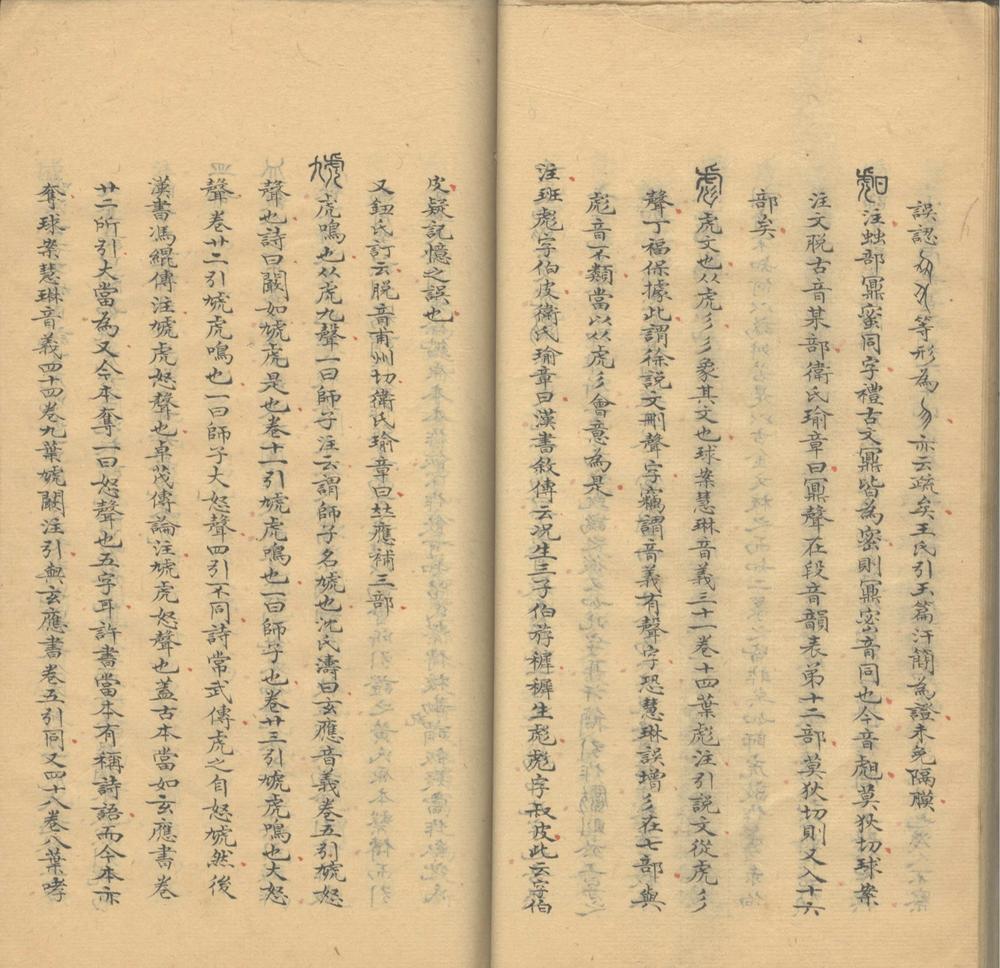 誤認等形為亦云疏矣王氏引玉篇汗簡為證未免隔膜
注䖵部鼏蜜同字禮古文鼏皆為密則鼏密音同也今音𧇭莫狄切球案
注文脫古音某部衛氏瑜章曰鼏聲在段音韻表弟十二部莫狄切則又入十六
部矣
彪虎文也从虎彡彡象其文也球案慧琳音義三十一卷十四葉彪注引說文從虎彡
聲丁福保據此謂徐說文刪聲字竊謂音義有聲字恐慧琳誤增彡在七部與
彪音不類當以从虎彡會意為是
注班彪字伯皮衛氏瑜章曰漢書敘傳云况生三子伯斿穉穉生彪彪字叔皮此云字伯
皮疑記憶之誤也
又鈕氏訂云脫音甫州切衛氏瑜章曰𠀤應補三部
虓虎鳴也从虎九聲一曰師子注云謂師子名虓也沈氏濤曰玄應音義卷五引虓怒
聲也詩曰闞如虓虎是也卷十一引虓虎鳴也一曰師子也卷廿三引虓虎鳴也大怒
聲卷廿二引虓虎鳴也一曰師子大怒聲四引不同詩常武傳虎之自怒虓然後
漢書馮緄傳注虓虎怒聲也卓茂傳論注虓虎怒聲也蓋古本當如玄應書卷
廿二所引大當為又今本奪一曰怒聲也五字耳許書當本有稱詩語而今本亦
奪球案慧琳音義四十四卷九葉虓闞注引與玄應書卷五引同又四十八卷八葉哮